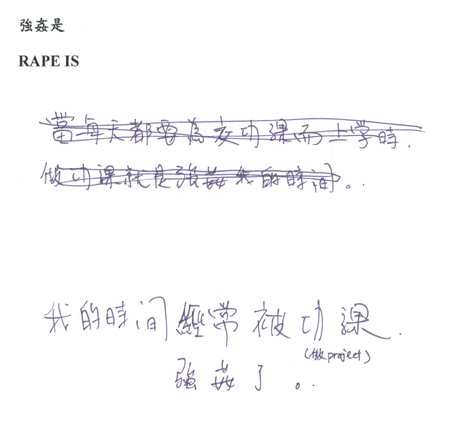 強姦是
RAPE IS
當每天都要為交功課而上学時.
做功課就是強姦我的時间。
我的時间經常被功課.
(做project)
強姦了。